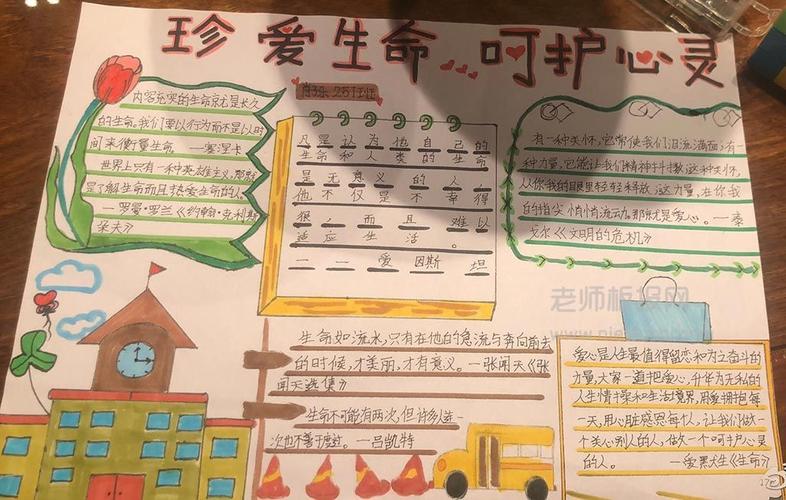 珍爱生命 呵护心灵
251班
内容充实的生命就是长久
的生命。我们要以行为而不是以时
间来衡量生命 —塞涅卡
世界上只有一种英雄主义,那就
是了解生命而且热爱生命的人。
—罗曼·罗兰《约翰·克利斯
朵夫》
凡是认为他自己的
生命和人类的生命
是无意义的人
他不仅是不幸得
很,而且难以
适应生活。
——爱因斯坦
有一种关怀,它常使我们泪流满面,有一
种力量,它能让我们精神抖擞,这种关怀,
从你我的眼里轻轻释放,这力量,在你我
的指尖悄悄流动。那就是爱心。—泰
戈尔《文明的危机》
老师板报网
生命如流水,只有在他的急流与奔向前去
的时候,才美丽,才有意义。—张闻天《张
闻天选集》
生命不可能有两次,但许多人连一
次也不善于度过。—吕凯特
爱心是人生最值得留恋和为之奋斗的
力量,大家一道把爱心,升华为无私的
人生情操和生活境界,用爱拥抱每
一天,用心脏感恩每个人,让我们做一
个关心别人的人,做一个呵护心灵
的人。 —爱默生《生命》